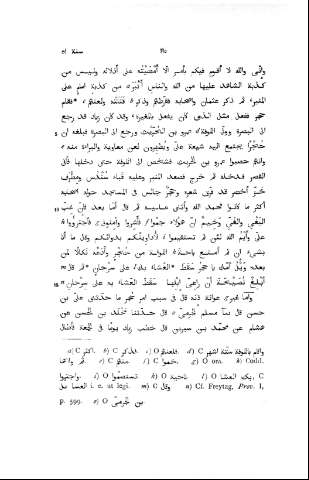 سنة ٥١ ١١٥
وانّى والله لا أقوم فيكم بأمر الّا أمضيته على أذلاله وليس من
كذبة الشاهد عليها من الله والناس أكبر من كذبة امام على
المنبر ثم ذكر عثمان وأصحابه فقرّظهم وذكر قتلته ولعنهم فقام
حجر ففعل مثل الذى كان يفعل بالمغيرة وقد كان زياد قد رجع
الى البصرة وولّى الكوفة عمرو بن الحريث ورجع الى البصرة فبلغه ان
حجرا يجتمع اليه شيعة علىّ ويظهرون لعن معاوية والبراءة منه
وانّهم حصبوا عمرو بن حريث فشخص الى الكوفة حتى دخلها فأتى
القصر فدخله ثم خرج فصعد المنبر وعليه قباء سندس ومطرف
خزّ أخضر قد فرق شعره وحجر جالس فى المسجد حوله أصحابه
أكثر ما كانوا فحمد الله وأثنى عليه ثم قال أما بعد فإنّ غبّ
البغى والغىّ وخيم انّ هؤلاء جمّوا فأشروا وأمنونى فاجترؤوا
علىّ وأيم الله لئن لم تستقيموا لأداوينّكم بدوائكم وقال ما أنا
بشىء ان لم أمنع باحة الكوفة من حجر وأدعه نكالا لمن
بعده ويل أمّك يا حجر سقط العشاء بك على سرحان ثم قال
أبلغ نصيحة أنّ راعى ابلها سقط العشاء به على سرحان
وأما غير عوانة فانه قال فى سبب امر حجر ما حدثنى على بن
حسن قال نا مسلم الجرمىّ قال حدثنا مخلد بن الحسن عن
هشام عن محمد بن سيرين قال خطب زياد يوما فى الجمعة فأطال
p. 599. o) O بن جرمىّ